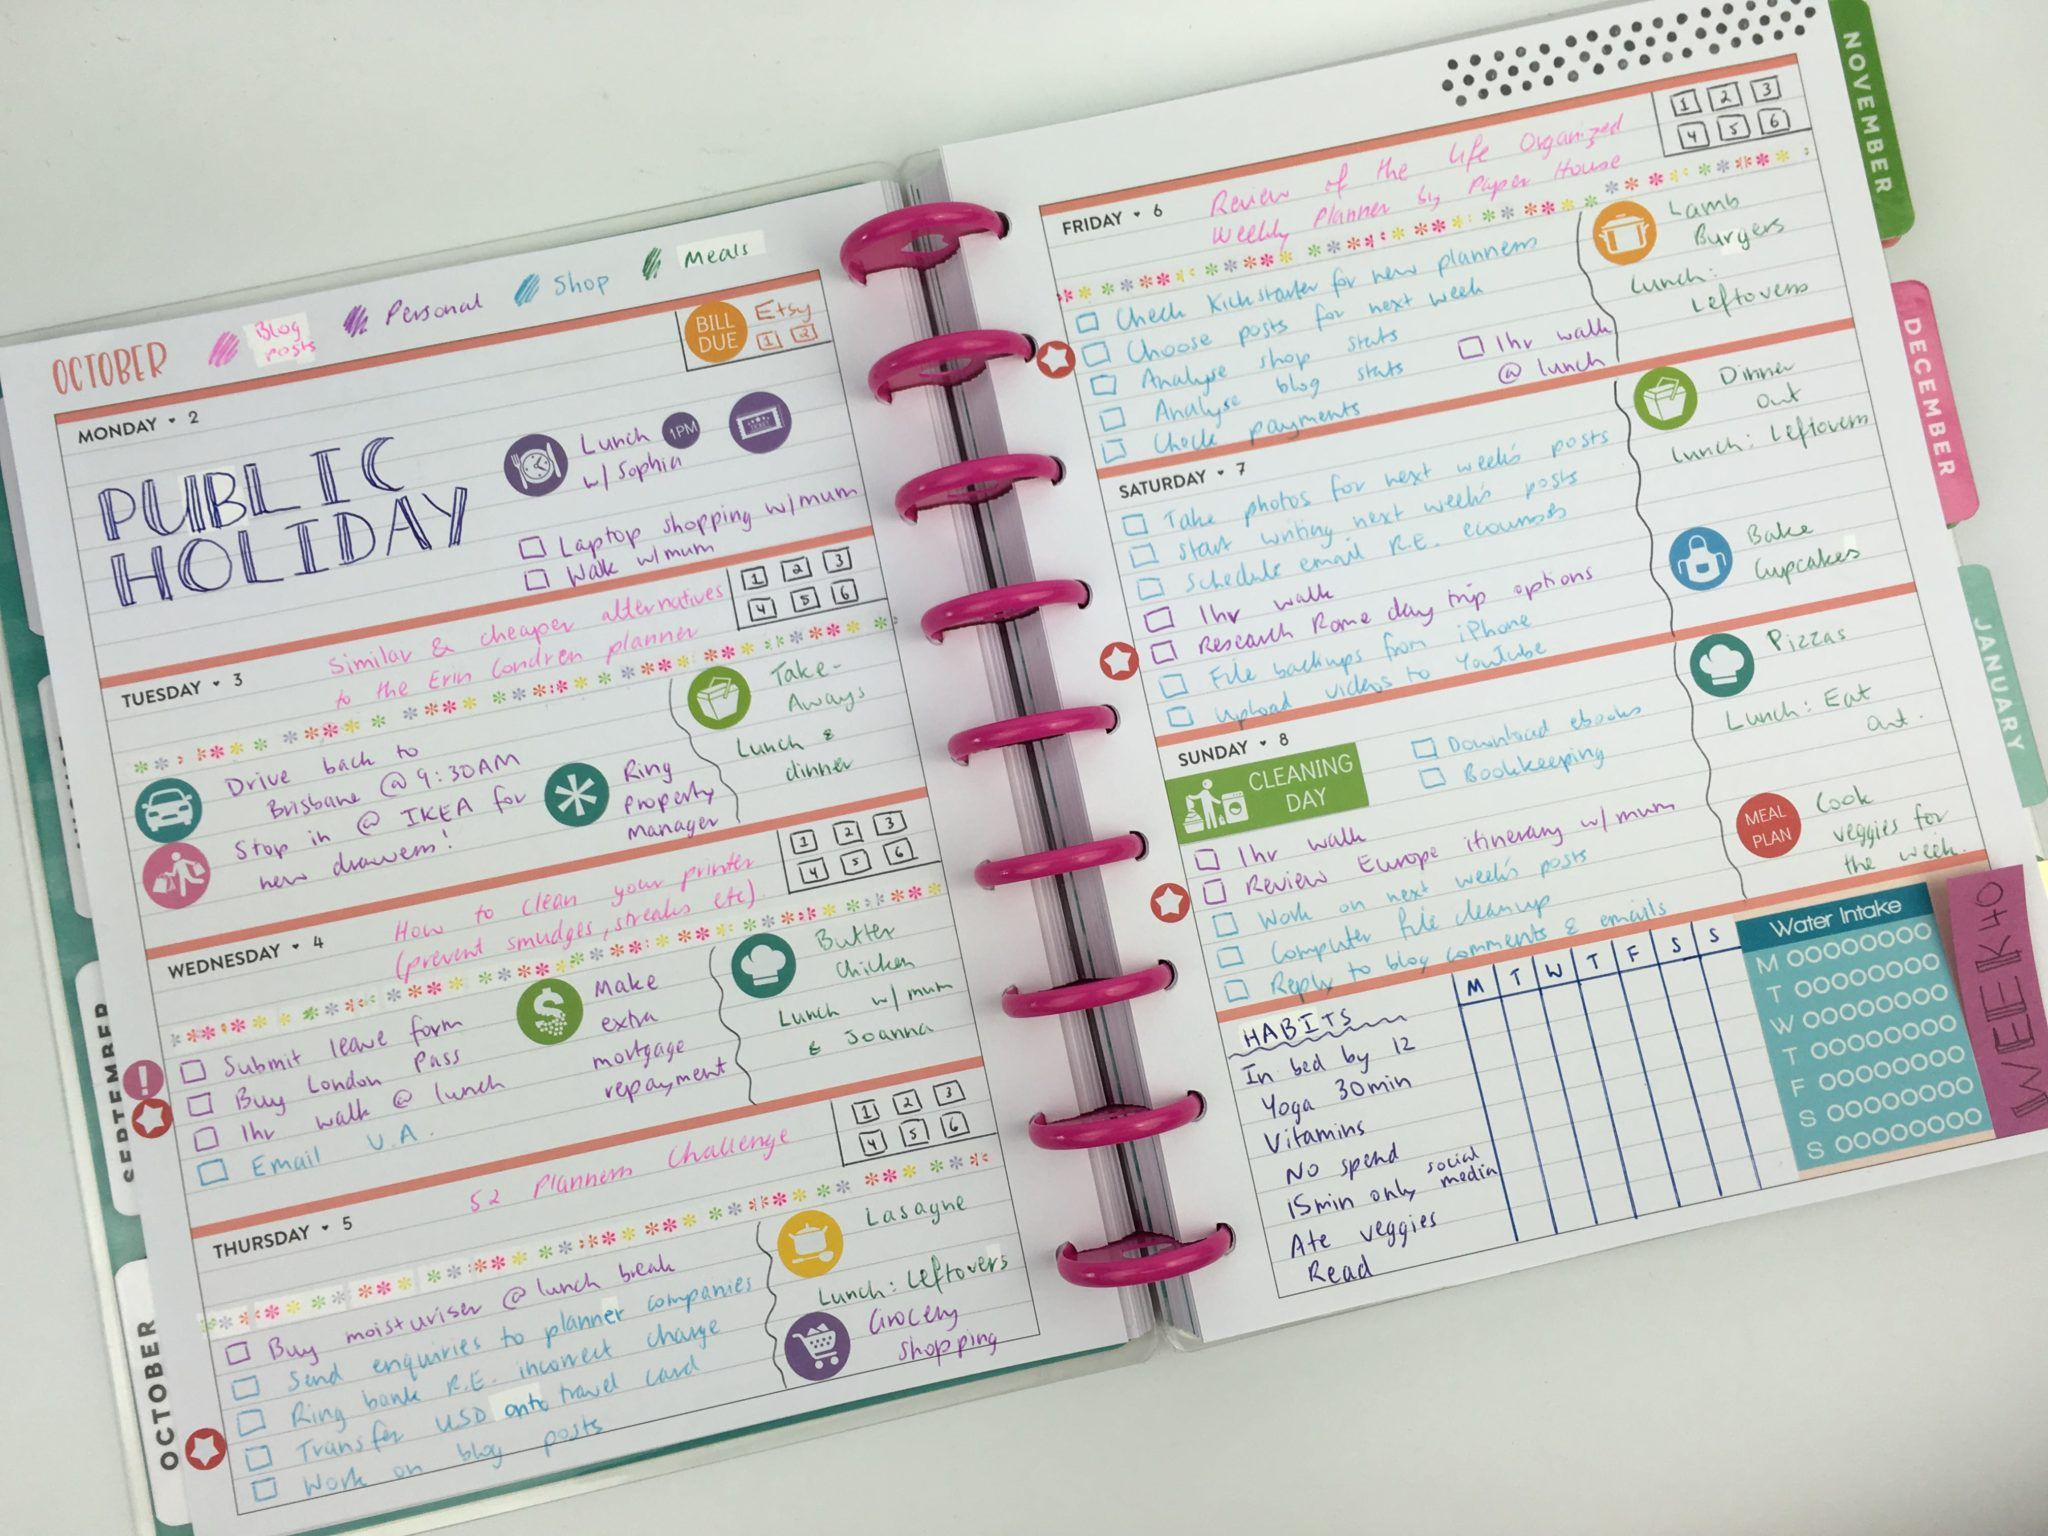 OCTOBER
Blog
posts
Personal
Shop
Meals
MONDAY • 2
BILL
DUE
Etsy
1 2
PUBLIC
HOLIDAY
Lunch 1PM
w/ Sophia
Laptop shopping w/mum
Walk w/mum
TUESDAY • 3
Similar & cheaper alternatives
to the Erin Condren planner
1 2 3
4 5 6
Drive back to
Brisbane @ 9:30AM
Stop in @ IKEA for
new drawers!
Ring
property
manager
Take-
Aways
Lunch &
dinner
WEDNESDAY • 4
How to clean your printer
(prevent smudges, streaks etc)
1 2 3
4 5 6
Submit leave form
Buy London Pass
1hr walk @ lunch
Email V.A.
Make
extra
mortgage
repayment
Butter
Chicken
Lunch w/ mum
& Joanna
THURSDAY • 5
52 Planners Challenge
1 2 3
4 5 6
Buy moisturiser @ lunch break
Send enquiries to planner companies
Ring bank R.E. incorrect charge
Transfer USD onto travel card
Work on blog posts
Lasagne
Lunch: Leftovers
Grocery
shopping
SEPTEMBER
OCTOBER
FRIDAY • 6
Review of the Life Organized
Weekly Planner by Paper House
1 2 3
4 5 6
Check Kickstarter for new planners
Choose posts for next week
Analyse shop stats
Analyse blog stats
Check payments
1hr walk
@ lunch
Lamb
Burgers
Lunch:
Leftovers
SATURDAY • 7
Take photos for next week's posts
Start writing next week's posts
Schedule email R.E. ecourses
1hr walk
Research Rome day trip options
File backups from iPhone
Upload videos to YouTube
Dinner
out
Lunch: Leftovers
Bake
Cupcakes
SUNDAY • 8
CLEANING
DAY
Download ebooks
Bookkeeping
1hr walk
Review Europe itinerary w/ mum
Work on next week's posts
Computer file cleanup
Reply to blog comments & emails
Pizzas
Lunch: Eat
out.
MEAL
PLAN
Cook
veggies for
the week.
HABITS
M T W T F S S
In bed by 12
Yoga 30min
Vitamins
No spend
15min only social
media
Ate veggies
Read
Water Intake
M
T
W
T
F
S
S
WEEK 40
NOVEMBER
DECEMBER
JANUARY